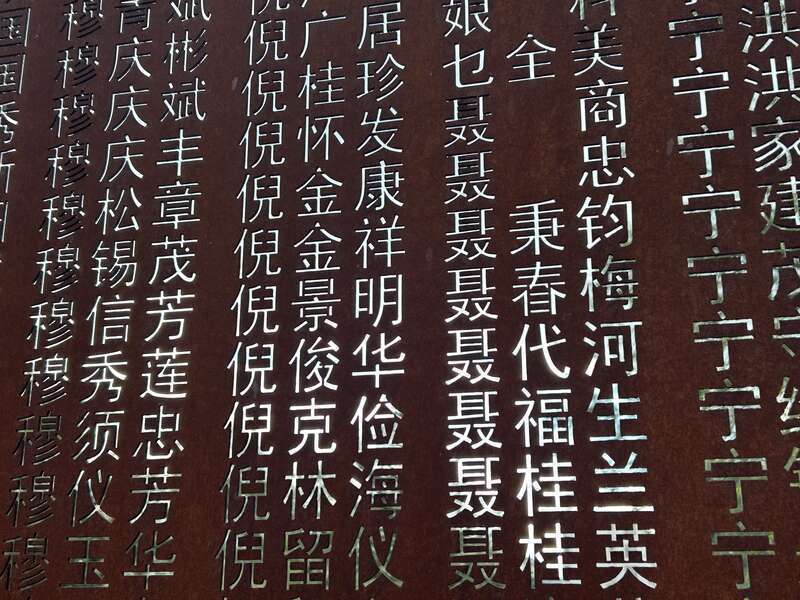 穆青斌
穆庆彬
穆庆斌
穆庆丰
穆松章
穆锡茂
穆信芳
穆秀莲
穆须忠
穆仪芳
穆玉华
倪广居
倪桂珍
倪怀发
倪金康
倪金祥
倪景明
倪俊华
倪克俭
倪林海
倪留仪
娘 科
乜全美
聂 商
聂 忠
聂秉钧
聂春梅
聂代河
聂福生
聂桂兰
聂桂英
宁洪
宁洪
宁家
宁建
宁茂
宁守
宁
宁
宁